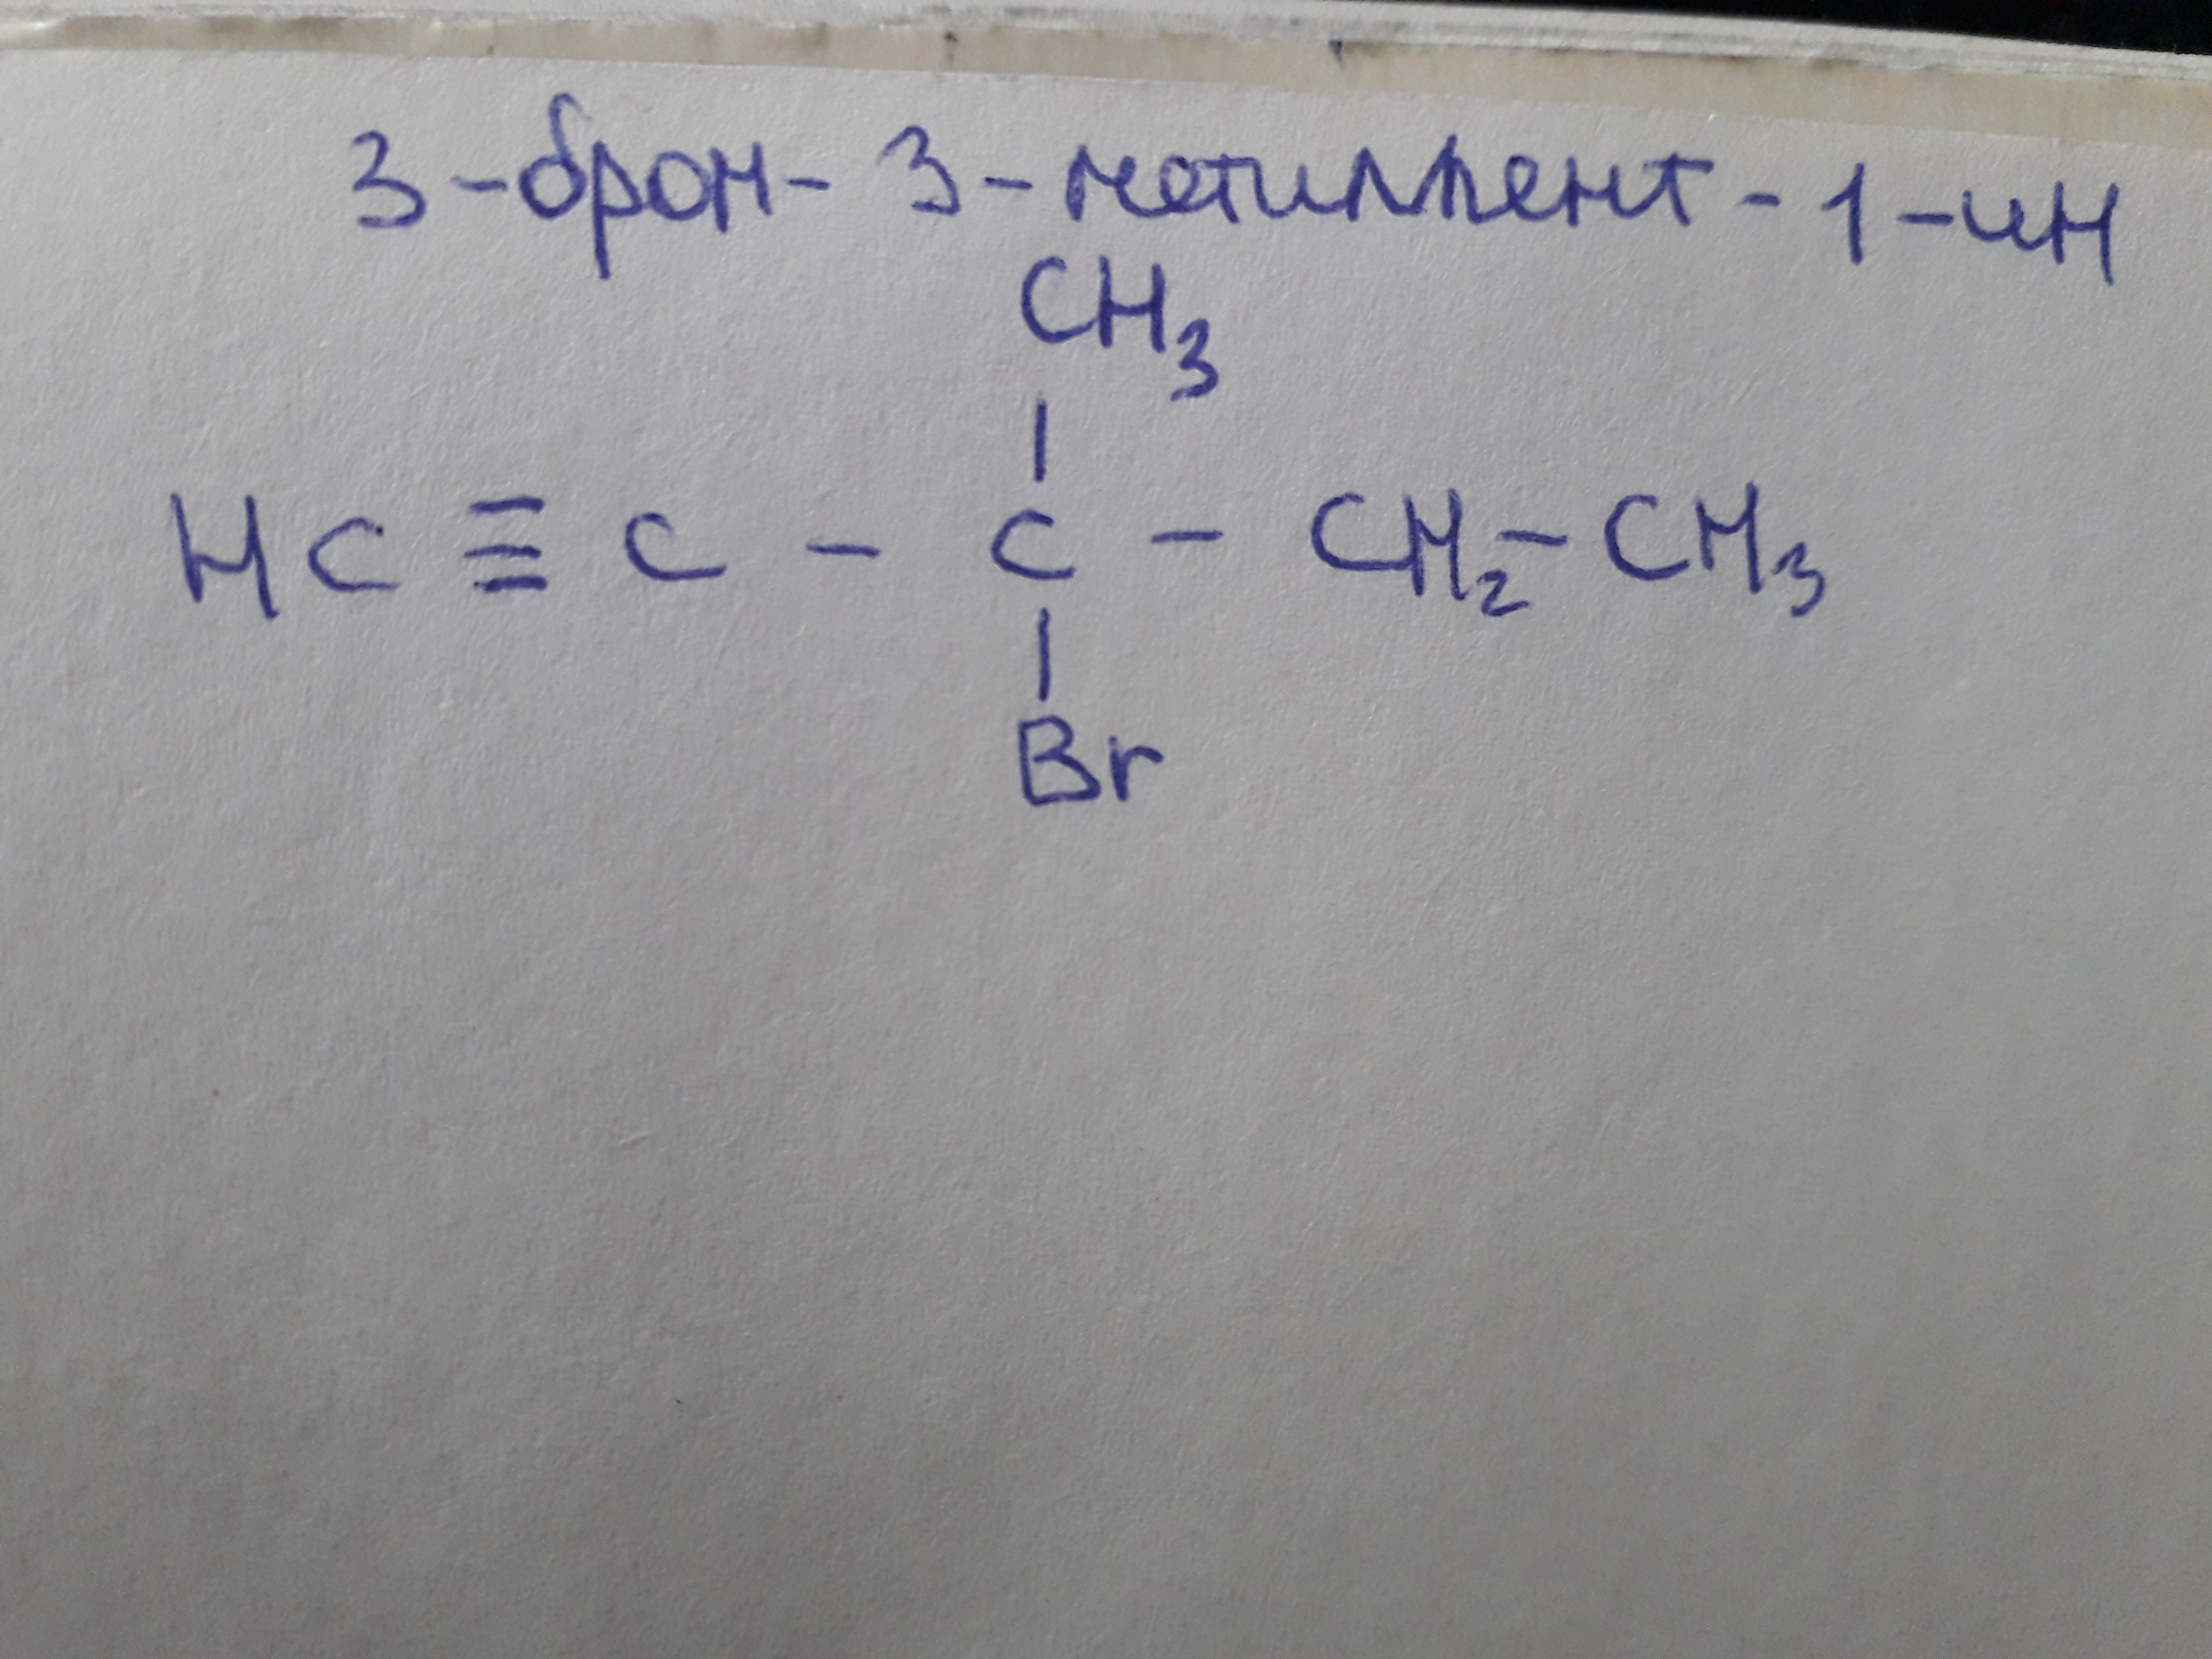 3-бром-3-метилпент-1-ин
CH₃
HC ≡ C - C - CH₂ - CH₃
Br